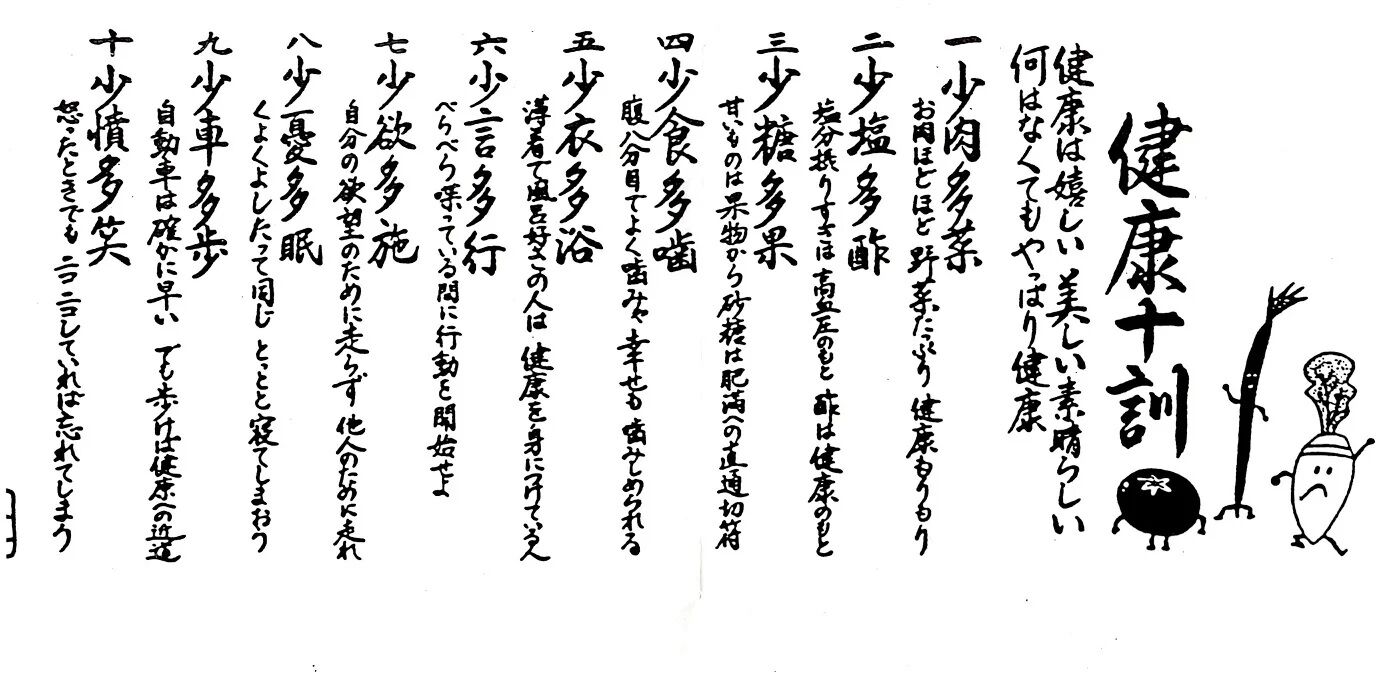 健康十訓
健康は嬉しい 美しい 素晴らしい
何はなくてもやっぱり健康
一 少肉多菜
お肉ほどほど 野菜たっぷり 健康もりもり
二 少塩多酢
塩分摂りすぎは高血圧のもと 酢は健康のもと
三 少糖多果
甘いものは果物から 砂糖は肥満への直通切符
四 少食多噛
腹八分目でよく噛みゃ 幸せも噛みしめられる
五 少衣多浴
薄着で風呂好きの人は 健康を身につけている人
六 少言多行
べらべら喋っている間に行動を開始せよ
七 少欲多施
自分の欲望のために走らず 他人のために走れ
八 少憂多眠
くよくよしたって同じ とっとと寝てしまおう
九 少車多歩
自動車は確かに早い でも歩けば健康への近道
十 少憤多笑
怒ったときでも ニコニコしていれば忘れてしまう